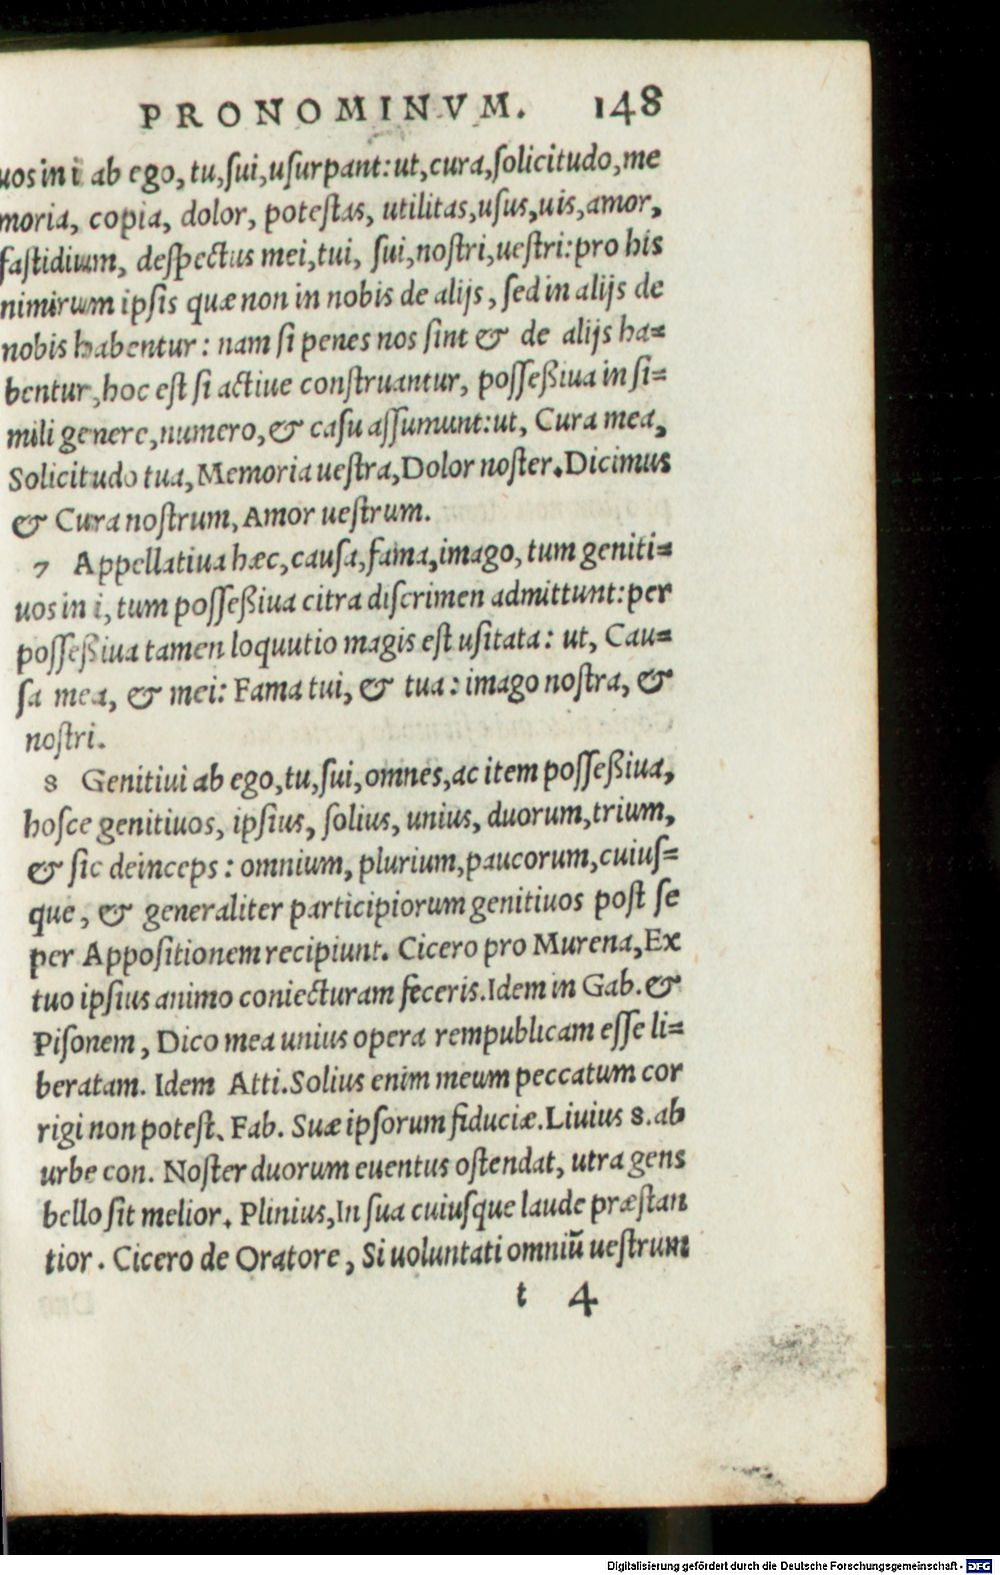 PRONOMINVM. 148
uos in i ab ego, tu, ſui, uſurpant: ut, cura, ſolicitudo, me
moria, copia, dolor, poteſtas, utilitas, uſus, uis, amor,
faſtidium, deſpectus mei, tui, ſui, noſtri, ueſtri: pro his
nimirum ipſis quæ non in nobis de alijs, ſed in alijs de
nobis habentur: nam ſi penes nos ſint & de alijs ha=
bentur, hoc eſt ſi actiue conſtruantur, poſſeßiua in ſi=
mili genere, numero, & caſu aſſumunt: ut, Cura mea,
Solicitudo tua, Memoria ueſtra, Dolor noſter. Dicimus
& Cura noſtrum, Amor ueſtrum.
7 Appellatiua hæc, cauſa, fama, imago, tum geniti=
uos in i, tum poſſeßiua citra diſcrimen admittunt: per
poſſeßiua tamen loquutio magis eſt uſitata: ut, Cau=
ſa mea, & mei: Fama tui, & tua: imago noſtra, &
noſtri.
8 Genitiui ab ego, tu, ſui, omnes, ac item poſſeßiua,
hoſce genitiuos, ipſius, ſolius, unius, duorum, trium,
& ſic deinceps: omnium, plurium, paucorum, cuiuſ=
que, & generaliter participiorum genitiuos poſt ſe
per Appoſitionem recipiunt. Cicero pro Murena, Ex
tuo ipſius animo coniecturam feceris. Idem in Gab. &
Piſonem, Dico mea unius opera rempublicam eſſe li=
beratam. Idem Atti. Solius enim meum peccatum cor
rigi non poteſt. Fab. Suæ ipſorum fiduciæ. Liuius 8. ab
urbe con. Noſter duorum euentus oſtendat, utra gens
bello ſit melior. Plinius, In ſua cuiuſque laude præſtan
tior. Cicero de Oratore, Si uoluntati omniū ueſtrum
t 4
Digitalisierung gefördert durch die Deutsche Forschungsgemeinschaft - DFG